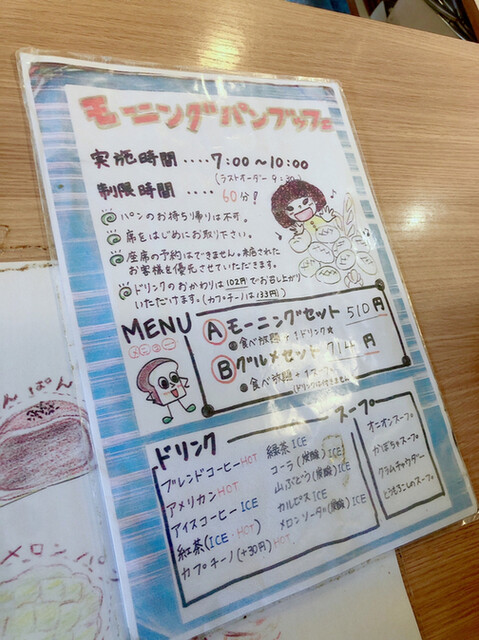 モーニングパンブッフェ
実施時間‥‥7:00〜10:00
(ラストオーダー 9:30)
制限時間‥‥60分!
パンのお持ち帰りは不可。
席をはじめにお取り下さい。
座席の予約はできません。来店された
お客様を優先させていただきます。
ドリンクのおかわりは102円でお召し上がり
いただけます。(カプチーノは133円)
MENU
メニュー
Aモーニングセット 510円
食べ放題+1ドリンク
Bグルメセット 714円
食べ放題+1スープ
(ドリンクは付きません)
ドリンク
ブレンドコーヒーHOT
アメリカンHOT
アイスコーヒーICE
紅茶(ICE・HOT)
カプチーノ(+30円)HOT
緑茶ICE
コーラ(炭酸)ICE
山ぶどう(炭酸)ICE
カルピスICE
メロンソーダ(炭酸)ICE
スープ
オニオンスープ
かぼちゃスープ
クラムチャウダー
とうもろこしのスープ
んぱん
メロンパン